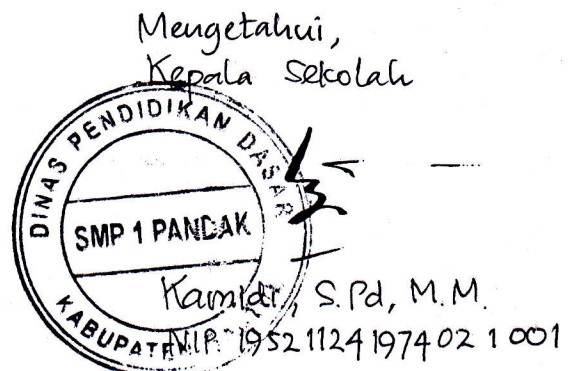 Mengetahui,
Kepala Sekolah
DINAS PENDIDIKAN DASAR
SMP 1 PANDAK
KABUPATEN
Kamidi, S.Pd, M.M.
NIP 19521124 197402 1 001